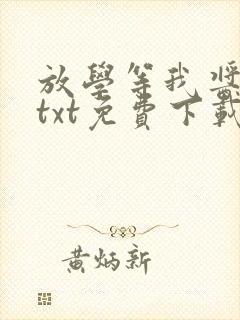 放學等我將
txt免費下載
黃炳新